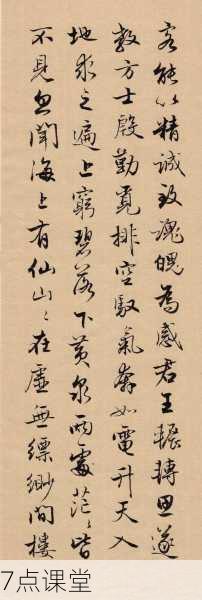 客能以精誠致魂魄為感君王輾轉思遂
教方士殷勤覓排空馭氣奔如電升天入
地求之遍上窮碧落下黃泉兩處茫〻皆
不見忽聞海上有仙山〻在虛無縹緲間樓
7点课堂